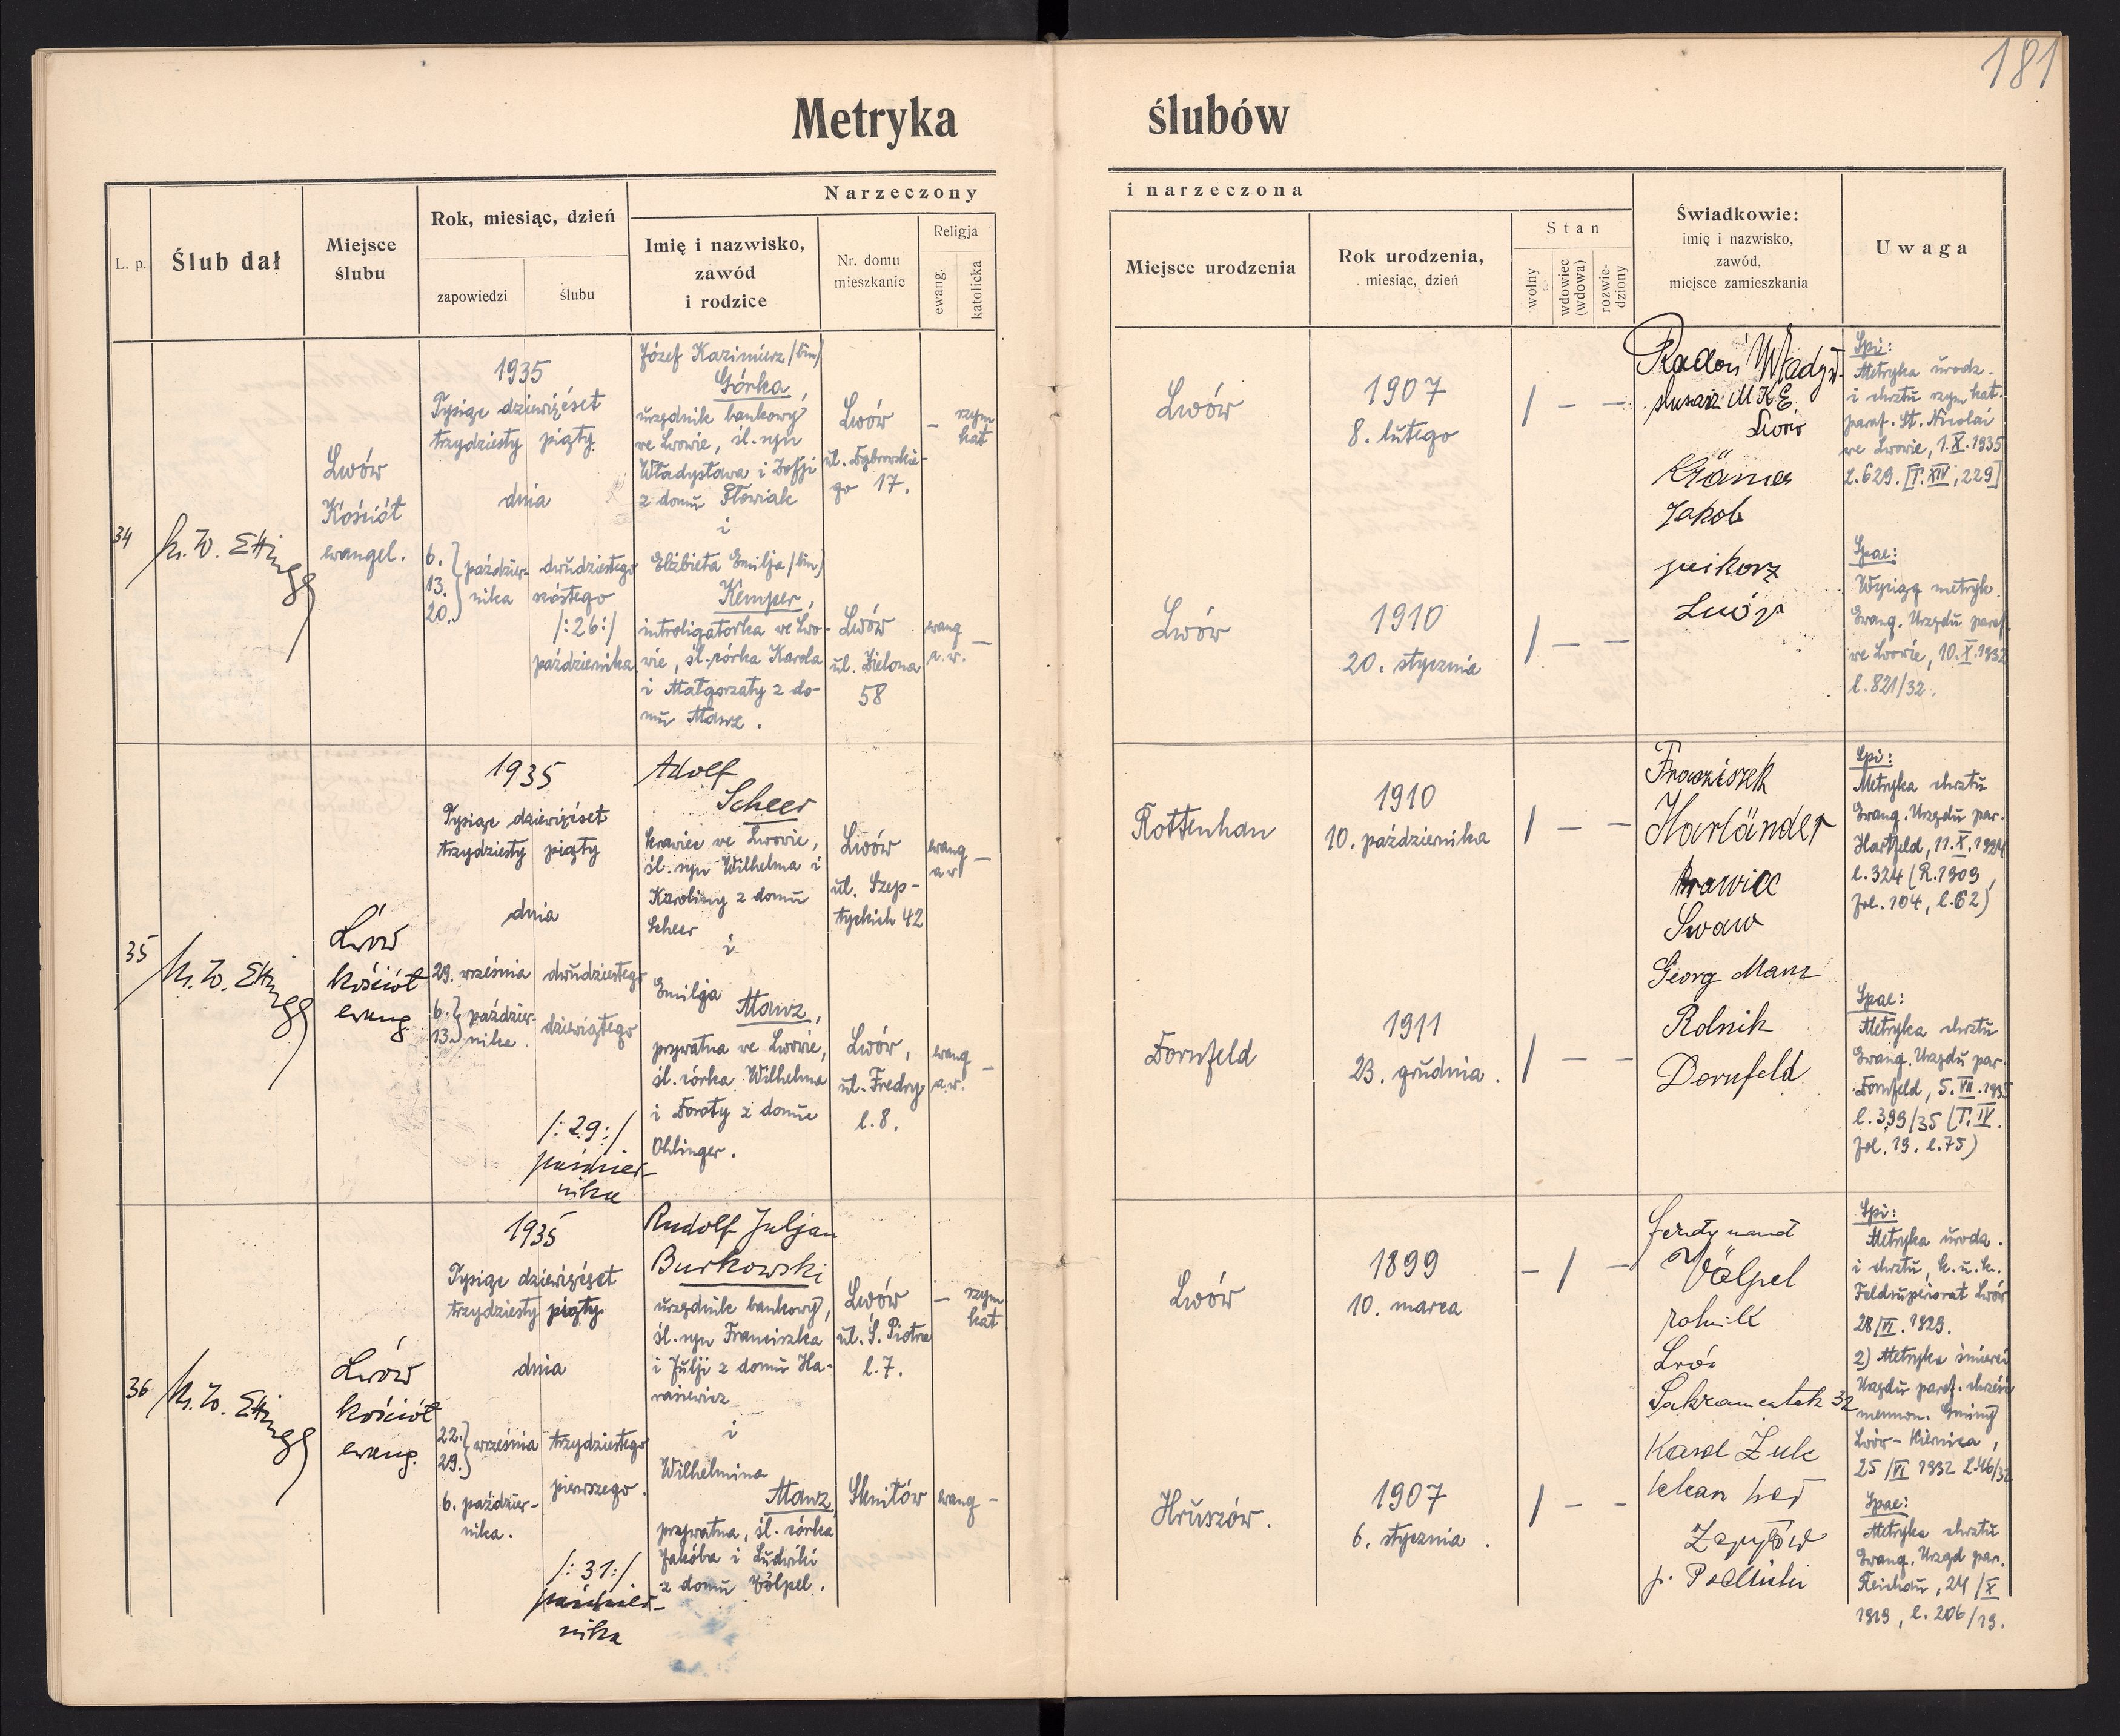 181
Metryka ślubów
L. p.
Ślub dał
Miejsce
ślubu
Rok, miesiąc, dzień
zapowiedzi
ślubu
Narzeczony
Imię i nazwisko,
zawód
i rodzice
Nr. domu
mieszkanie
Religja
ewang.
katolicka
i narzeczona
Miejsce urodzenia
Rok urodzenia,
miesiąc, dzień
Stan
wolny
wdowiec
(wdowa)
rozwie-
dziony
Świadkowie:
imię i nazwisko,
zawód,
miejsce zamieszkania
Uwaga
34
Lwów
Kościół
ewangel.
1935
Tysiąc dziewięćset
trzydziesty piąty
dnia
6.
13.
20.
paździer-
nika
dwudziestego
szóstego
/:26:/
października
Józef Kazimierz /bim/
Górka,
urzędnik bankowy
we Lwowie, śl. syn
Władysława i Zofji
z domu Słowiak
i
Elżbieta Emilja /bim/
Kemper,
introligatorka we Lwo-
wie, śl. córka Karola
i Małgorzaty z do-
mu Manz.
Lwów
ul. Dąbrowskie-
go 17.
Lwów
ul. Zielona
58
– rzym
kat
ewang
a.w. –
Lwów
1907
8. lutego
/ – –
Lwów
1910
20. stycznia
/ – –
Radoń Władysł.
ślusarz MKE
Lwów
Krämer
Jakob
piekarz
Lwów
Spi:
Metryka urodz.
i chrztu rzym kat.
paraf. St. Nicolai
we Lwowie, 1.X.1935
L.629. [T.XIV, 229]
Spae:
Wyciąg metryk.
Ewang. Urzędu paraf.
we Lwowie, 10.X.1932
l.821/32.
35
Lwów
kościół
ewang.
1935
Tysiąc dziewięćset
trzydziesty piąty
dnia
29. września
6.
13.
paździer-
nika
dwudziestego
dziewiątego
/:29:/
paździer-
nika
Adolf
Scheer
krawiec we Lwowie,
śl. syn Wilhelma i
Karoliny z domu
Scheer
i
Emilja
Manz,
prywatna we Lwowie,
śl. córka Wilhelma
i Doroty z domu
Ohlinger.
Lwów
ul. Szep-
tyckich 42
Lwów,
ul. Fredry
l.8.
ewang –
aw
ewang –
a.w.
Rottenhan
1910
10. października
/ – –
Dornfeld
1911
23. grudnia.
/ – –
Franziszek
Harländer
krawiec
Georg Manz
Rolnik
Dornfeld
Spi:
Metryka chrztu
Ewang. Urzędu par.
Hartfeld, 11.X.1924
l.324 (R.1909,
fol. 104, l.62)
Spae:
Metryka chrztu
Ewang. Urzędu par.
Dornfeld, 5.VII.1935
l.399/35 (T.IV.
fol. 19. l.75)
36
Lwów
kościół
ewang.
1935
Tysiąc dziewięćset
trzydziesty piąty
dnia
22.
29.
września
6. paździer-
nika.
trzydziestego
pierwszego.
/:31:/
paździer-
nika
Rudolf Juljan
Burkowski
urzędnik bankowy,
śl. syn Franciszka
i Julji z domu Ha-
rasiewicz
i
Wilhelmina
Manz,
prywatna, śl. córka
Jakóba i Ludwiki
z domu Völpel.
Lwów
ul. Ś. Piotra
l.7.
Skniłów
– rzym
kat
ewang –
Lwów
1899
10. marca
– / –
Hruszów.
1907
6. stycznia.
/ – –
ferdynand
Völpel
rolnik
Sakramentek 32
Karol Żuk
Zapytów
Spi:
Metryka urodz.
i chrztu, k.u.k.
Feldsuperiorat Lwów
28/VI.1929.
2) Metryka śmierci
Urzędu paraf. chrześc
mennon. Gminy
Lwów-Kiernica,
25/VI 1932 L.46/32
Spae:
Metryka chrztu
Ewang. Urząd par.
Reichau, 24/X
1919, l. 206/19.